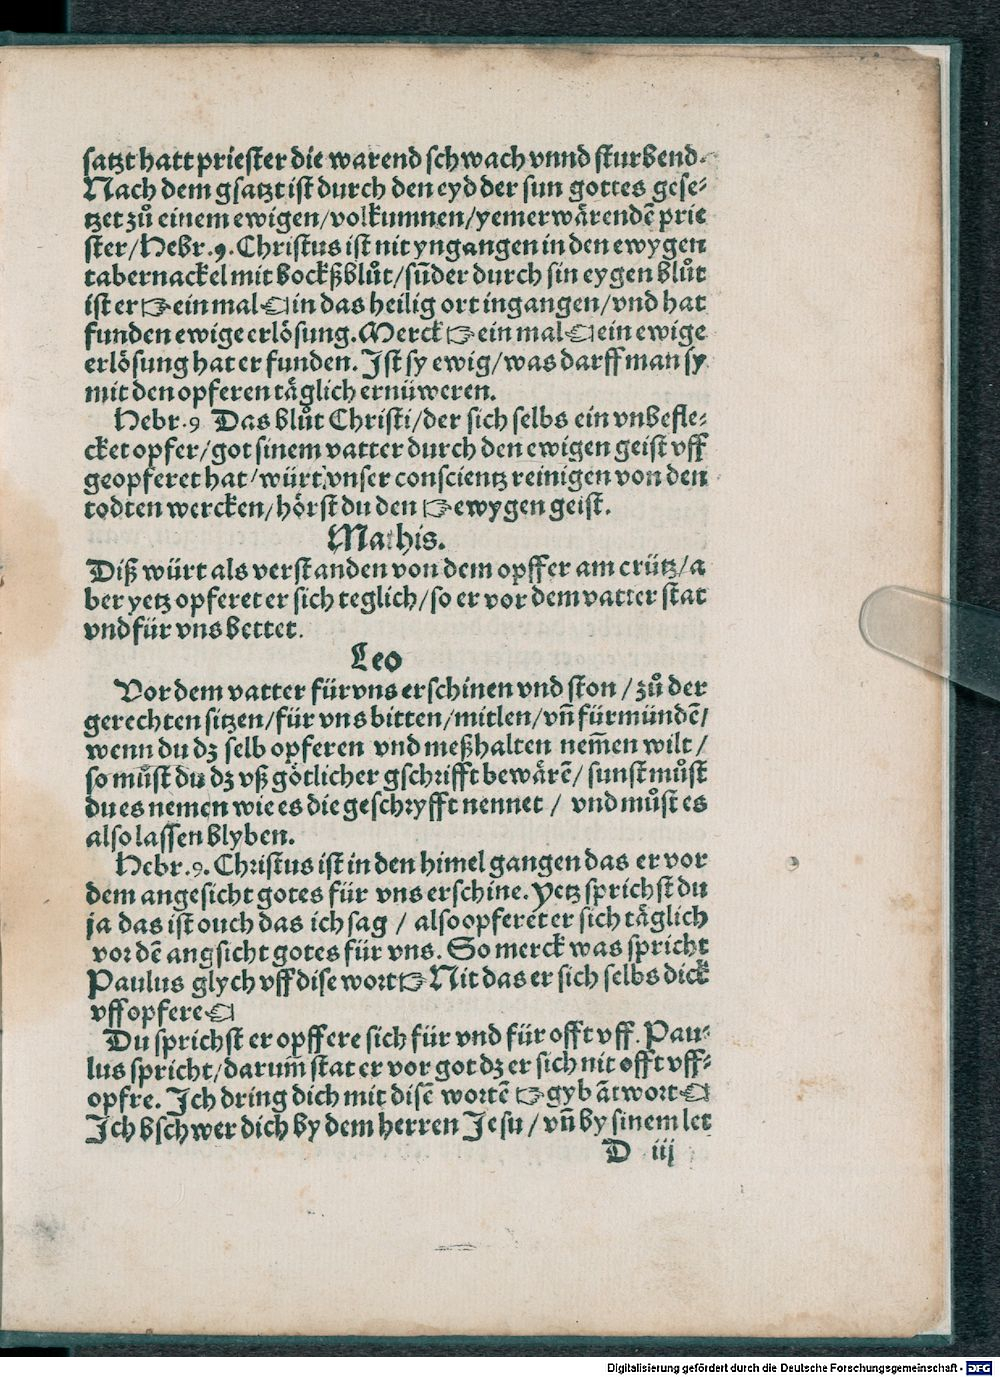 satzt hatt priester die warend schwach vnnd sturbend.
Nach dem gsatzt ist durch den eyd der sun gottes gese⸗
tzet zuͦ einem ewigen/volkumnen/yemerwärendẽ prie
ster/Hebr.9. Christus ist nit yngangen in den ewygen
tabernackel mit bockßbluͦt/sũder durch sin eygen bluͦt
ist er ☞ein mal☜in das heilig ort ingangen/vnd hat
funden ewige erlösung. Merck ☞ein mal☜ein ewige
erlösung hat er funden. Ist sy ewig/was darff man sy
mit den opferen täglich ernüweren.
Hebr.9 Das bluͦt Christi/der sich selbs ein vnbefle⸗
cket opfer/got sinem vatter durch den ewigen geist vff
geopferet hat/würt vnser conscientz reinigen von den
todten wercken/hörst du den ☞ewygen geist.
Mathis.
Diß würt als verstanden von dem opffer am crütz/a
ber yetz opferet er sich teglich/so er vor dem vatter stat
vnd für vns bettet.
Leo
Vor dem vatter für vns erschinen vnd ston/zuͦ der
gerechten sitzen/für vns bitten/mitlen/vñ fürmündẽ/
wenn du dz selb opferen vnd meßhalten nem̃en wilt/
so muͦst du dz vß götlicher gschrifft bewärẽ/sunst muͦst
du es nemen wie es die geschryfft nennet/vnd muͦst es
also lassen blyben.
Hebr.9. Christus ist in den himel gangen das er vor
dem angesicht gotes für vns erschine. Yetz sprichst du
ja das ist ouch das ich sag/also opferet er sich täglich
vor dẽ angsicht gotes für vns. So merck was spricht
Paulus glych vff dise wort☞Nit das er sich selbs dick
vff opfere☜
Du sprichst er opffere sich für vnd für offt vff. Pau⸗
lus spricht/darum̃ stat er vor got dz er sich nit offt vff⸗
opfre. Ich dring dich mit disẽ wortẽ ☞gyb ãtwort☜
Ich bschwer dich by dem herren Jesu/vñ by sinem let
D iij
Digitalisierung gefördert durch die Deutsche Forschungsgemeinschaft - DFG